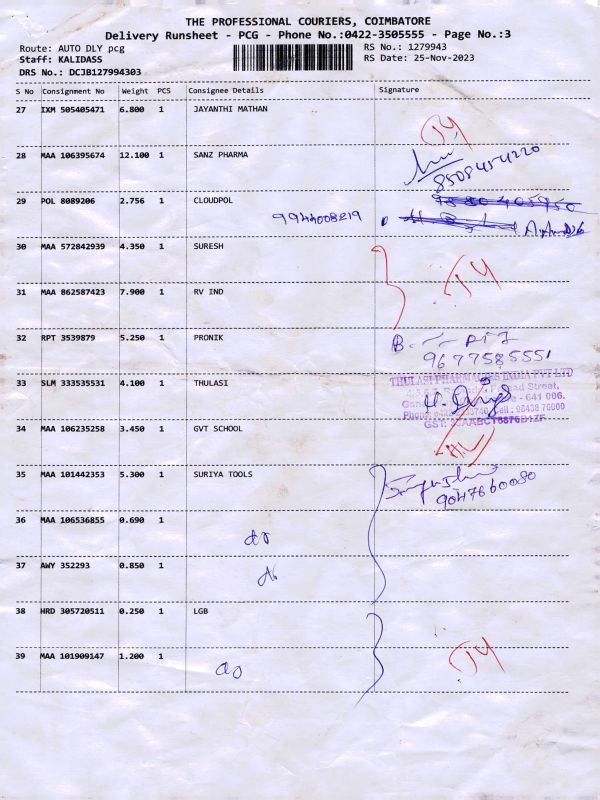 THE PROFESSIONAL COURIERS, COIMBATORE
Delivery Runsheet - PCG - Phone No.:0422-3505555 - Page No.:3
Route: AUTO DLY pcg
RS No.: 1279943
Staff: KALIDASS
RS Date: 25-Nov-2023
DRS No.: DCJB127994303
S No Consignment No Weight PCS Consignee Details Signature
27 IXM 505405471 6.800 1 JAYANTHI MATHAN
28 MAA 106395674 12.100 1 SANZ PHARMA
8508454220
29 POL 8089206 2.756 1 CLOUDPOL
9944008219
30 MAA 572842939 4.350 1 SURESH
31 MAA 862587423 7.900 1 RV IND
32 RPT 3539879 5.250 1 PRONIK
9677585551
33 SLM 333535531 4.100 1 THULASI
THULASI PHARMACIES INDIA PVT LTD
Street,
- 641 006.
Phone: Cell : 08438 70000
GST:
34 MAA 106235258 3.450 1 GVT SCHOOL
35 MAA 101442353 5.300 1 SURIYA TOOLS
9047660080
36 MAA 106536855 0.690 1
do
37 AWY 352293 0.850 1
38 HRD 305720511 0.250 1 LGB
39 MAA 101909147 1.200 1
do